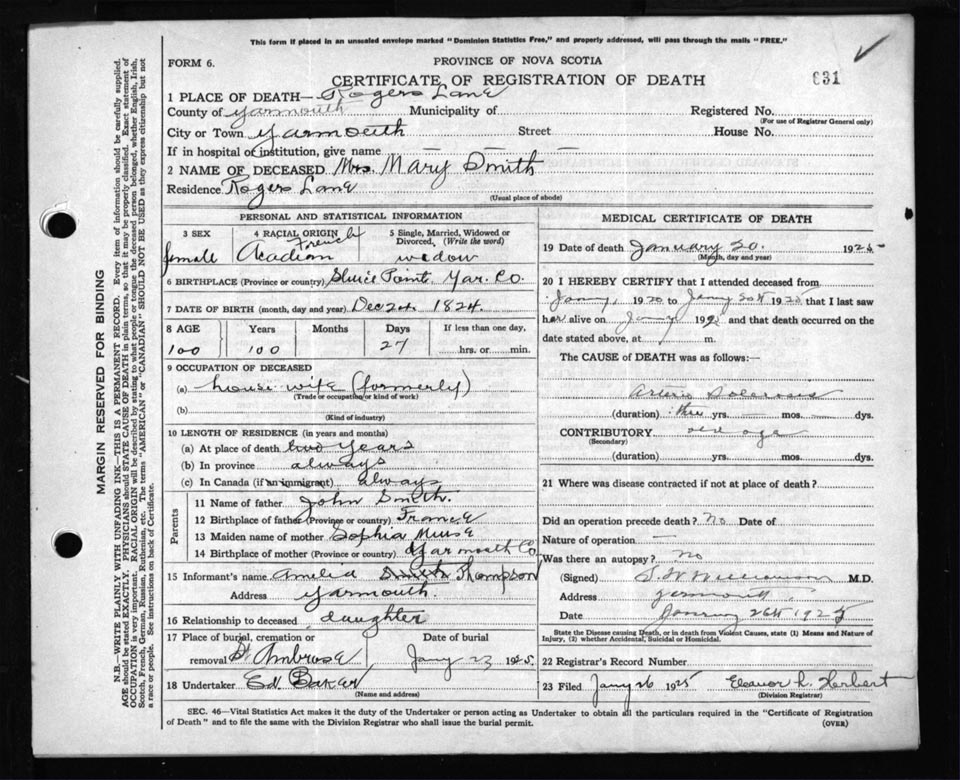 This form if placed in an unsealed envelope marked "Dominion Statistics Free," and properly addressed, will pass through the mails "FREE."
FORM 6.
PROVINCE OF NOVA SCOTIA
CERTIFICATE OF REGISTRATION OF DEATH
631
1 PLACE OF DEATH— Rogers Lane
County of Yarmouth Municipality of Registered No.
(For use of Registrar General only)
City or Town Yarmouth Street House No.
If in hospital or institution, give name — — —
2 NAME OF DECEASED Mrs. Mary Smith
Residence Rogers Lane
(Usual place of abode)
PERSONAL AND STATISTICAL INFORMATION
3 SEX 4 RACIAL ORIGIN 5 Single, Married, Widowed or Divorced, (Write the word)
female Acadian French widow
6 BIRTHPLACE (Province or country) Sluice Point Yar. Co.
7 DATE OF BIRTH (month, day and year) Dec 24. 1824.
8 AGE Years Months Days If less than one day,
100 100 27 hrs. or min.
9 OCCUPATION OF DECEASED
(a) house-wife (formerly)
(Trade or occupation or kind of work)
(b)
(Kind of industry)
10 LENGTH OF RESIDENCE (in years and months)
(a) At place of death two years
(b) In province always
(c) In Canada (if an immigrant) always
Parents
11 Name of father John Smith.
12 Birthplace of father (Province or country) France
13 Maiden name of mother Sophia Muise
14 Birthplace of mother (Province or country) Yarmouth Co.
15 Informant's name Amelia Smith Thompson
Address Yarmouth.
16 Relationship to deceased daughter
17 Place of burial, cremation or Date of burial
removal St Ambrose Jany 23 1925.
18 Undertaker Ed Baker
(Name and address)
MEDICAL CERTIFICATE OF DEATH
19 Date of death January 20. 1925
(Month, day and year)
20 I HEREBY CERTIFY that I attended deceased from
Jany, 1920 to Jany 20th 1925 that I last saw
her alive on Jany 192 and that death occurred on the
date stated above, at m.
The CAUSE of DEATH was as follows:
Arterio Sclerosis
(duration) three yrs. — mos. — dys.
CONTRIBUTORY old age
(Secondary)
(duration) yrs. mos. dys.
21 Where was disease contracted if not at place of death?
Did an operation precede death? No Date of
Nature of operation —
Was there an autopsy? no
(Signed) S. W. Williamson M.D.
Address Yarmouth
Date January 26th 1925
State the Disease causing Death, or in death from Violent Causes, state (1) Means and Nature of Injury, (2) whether Accidental, Suicidal or Homicidal.
22 Registrar's Record Number
23 Filed Jany 26 1925 Eleanor L. Herbert
(Division Registrar)
SEC. 46—Vital Statistics Act makes it the duty of the Undertaker or person acting as Undertaker to obtain all the particulars required in the "Certificate of Registration
of Death" and to file the same with the Division Registrar who shall issue the burial permit.
(OVER)
MARGIN RESERVED FOR BINDING
N.B.—WRITE PLAINLY WITH UNFADING INK—THIS IS A PERMANENT RECORD. Every item of information should be carefully supplied.
AGE should be stated EXACTLY. PHYSICIANS should STATE CAUSE OF DEATH in plain terms, so that it may be properly classified. Exact statement of
OCCUPATION is very important. RACIAL ORIGIN will be described by stating to what people or tongue the deceased person belonged, whether English, Irish,
Scotch, French, German, Russian, Ruthenian, etc. The terms "AMERICAN" or "CANADIAN" SHOULD NOT BE USED as they express citizenship but not
a race or people. See instructions on back of Certificate.